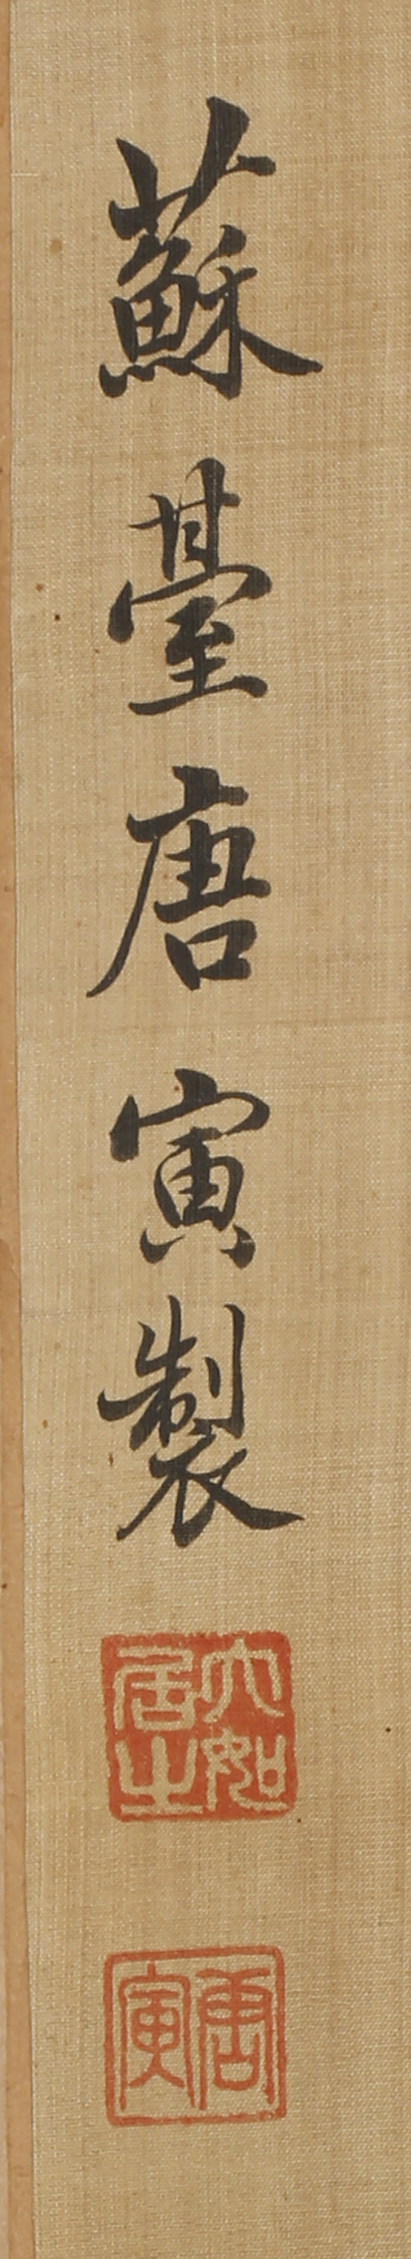 蘇臺唐寅製
六如居士
唐寅